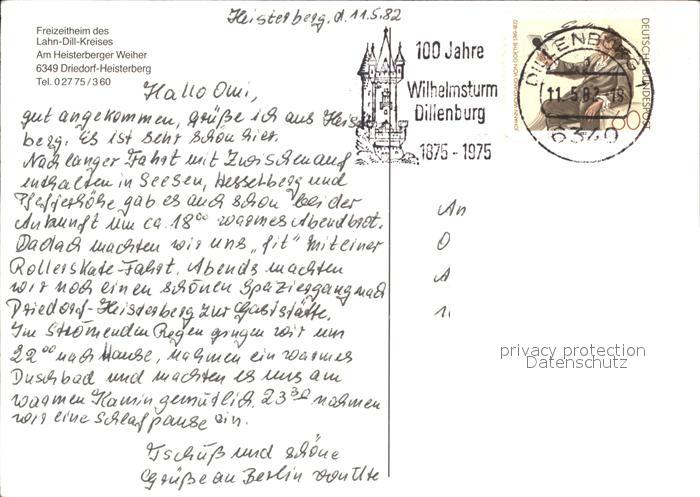 Heisterberg, d. 11.5.82
Freizeitheim des
Lahn-Dill-Kreises
Am Heisterberger Weiher
6349 Driedorf-Heisterberg
Tel. 0 27 75 / 3 60
Hallo Omi,
gut angekommen, grüße ich aus Heister
berg. Es ist sehr schön hier.
Nach langer Fahrt mit Zwischenauf
enthalten in Seesen, Hesselberg und
Pfefferhöhe gab es auch schon bei der
Ankunft um ca. 18⁰⁰ warmes Abendbrot.
Danach machten wir uns „fit" mit einer
Rollerskate-Fahrt. Abends machten
wir noch einen schönen Spaziergang nach
Driedorf-Heisterberg zur Gaststätte.
Im strömenden Regen gingen wir um
22⁰⁰ nach Hause, nahmen ein warmes
Duschbad und machten es uns am
warmen Kamin gemütlich. 23³⁰ nahmen
wir eine Schlafpause ein.
Tschüß und schöne
Grüße an Berlin von Ute
100 Jahre
Wilhelmsturm
Dillenburg
1875 - 1975
DILLENBURG 1
11.5.82-18
6340
JOHANN WOLFGANG VON GOETHE 1749-1832
DEUTSCHE BUNDESPOST
60
An
O
A
privacy protection
Datenschutz